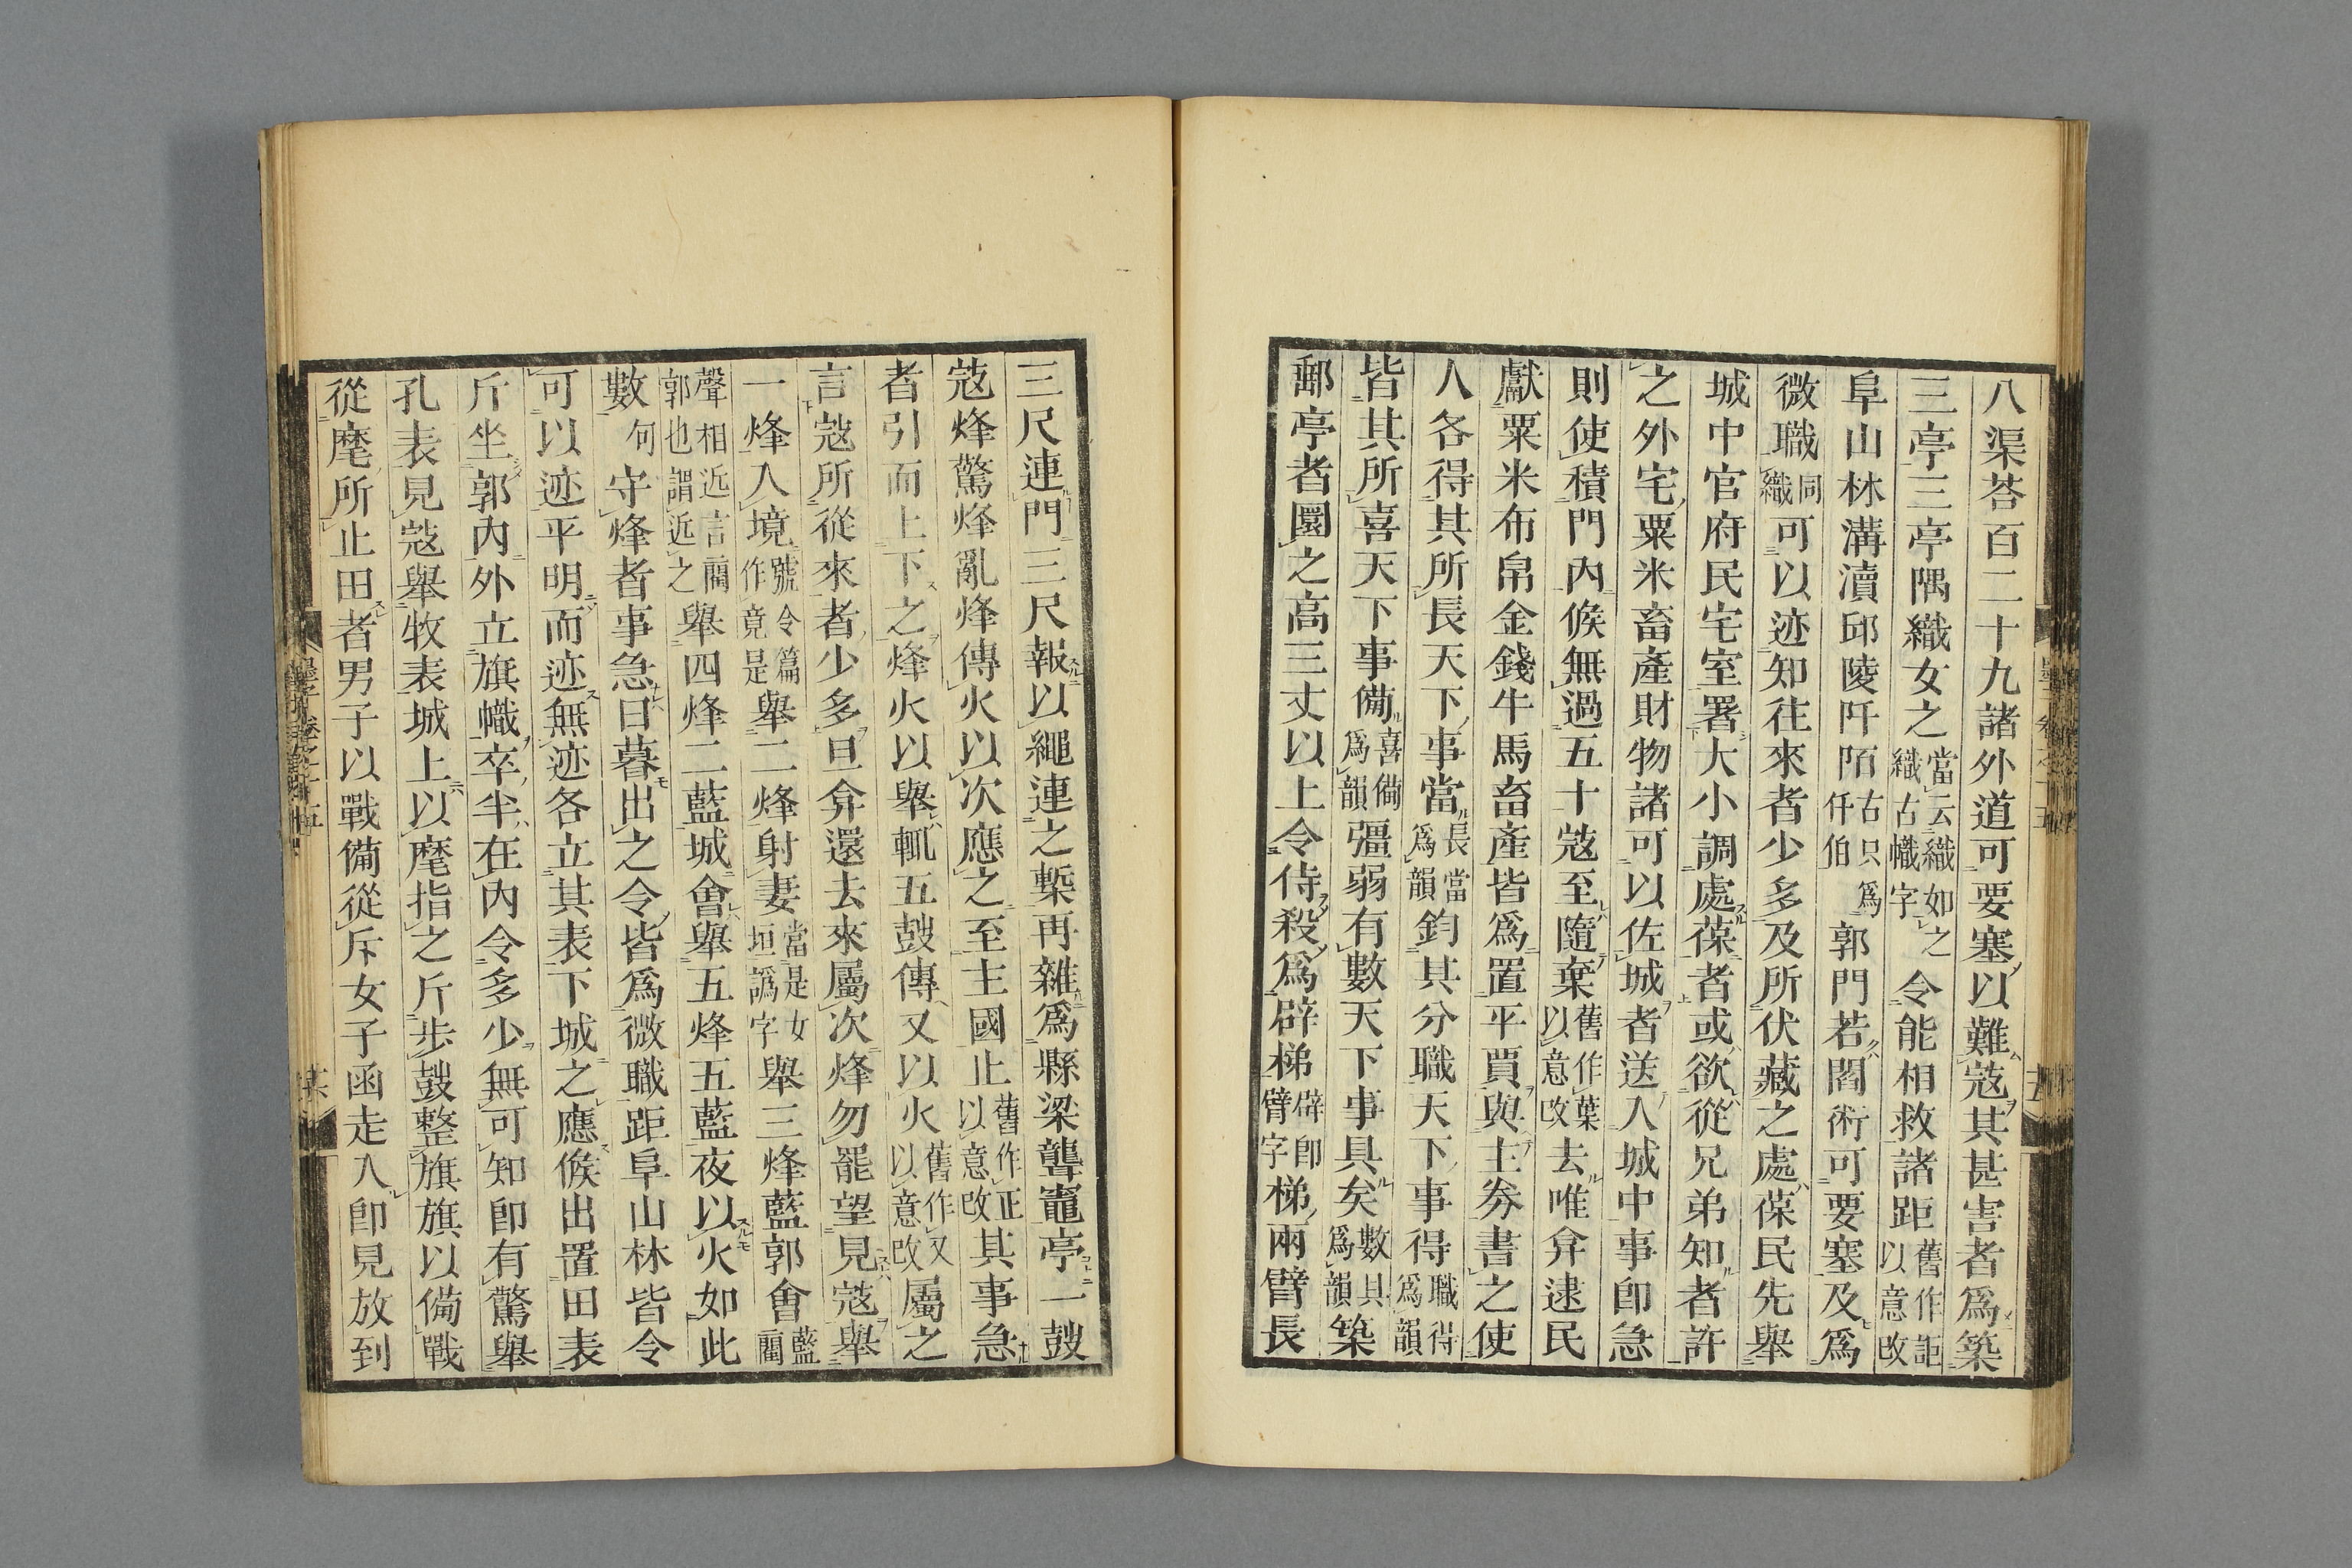 八渠荅百二十九諸外道可要塞以難寇其甚害者爲築
三亭三亭隅織女之當云織如之織古幟字令能相救諸距舊作詎以意改
阜山林溝瀆邱陵阡陌古只爲仟伯郭門若閻術可要塞及爲
微職同織可以迹知往來者少多及所伏藏之處葆民先舉
城中官府民宅室署大小調處葆者或欲從兄弟知者許
之外宅粟米畜產財物諸可以佐城者送入城中事卽急
則使積門內候無過五十寇至隨棄舊作葉以意改去唯弇逮民
獻粟米布帛金錢牛馬畜產皆爲置平賈與主券書之使
人各得其所長天下事當長當爲韻鈞其分職天下事得職得爲韻
皆其所喜天下事備喜備爲韻彊弱有數天下事具矣數具爲韻築
郵亭者圜之高三丈以上令侍殺爲辟梯辟卽臂字梯兩臂長
三尺連門三尺報以繩連之槧再雜爲縣梁聾竈亭一鼓
寇烽驚烽亂烽傳火以次應之至主國止舊作正以意改其事急
者引而上下之烽火以舉輒五鼓傳又以火舊作又以意改屬之
言寇所從來者少多旦弇還去來屬次烽勿罷望見寇舉
一烽入境號令篇作竟是舉二烽射妻當是女垣譌字舉三烽藍郭會藍藺
聲相近言藺郭也謂近之舉四烽二藍城會舉五烽五藍夜以火如此
數句守烽者事急日暮出之令皆爲微職距阜山林皆令
可以迹平明而迹無迹各立其表下城之應候出置田表
斤坐郭內外立旗幟卒半在內令多少無可知卽有驚舉
孔表見寇舉牧表城上以麾指之斤步鼓整旗旗以備戰
從麾所止田者男子以戰備從斥女子函走入卽見放到